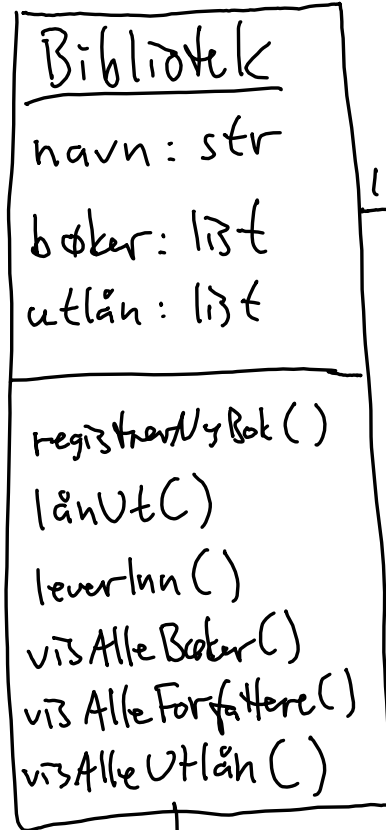 Bibliotek
navn: str
bøker: list
utlån: list
1
registrerNyBok()
lånUt()
leverInn()
visAlleBøker()
visAlleForfattere()
visAlleUtlån()